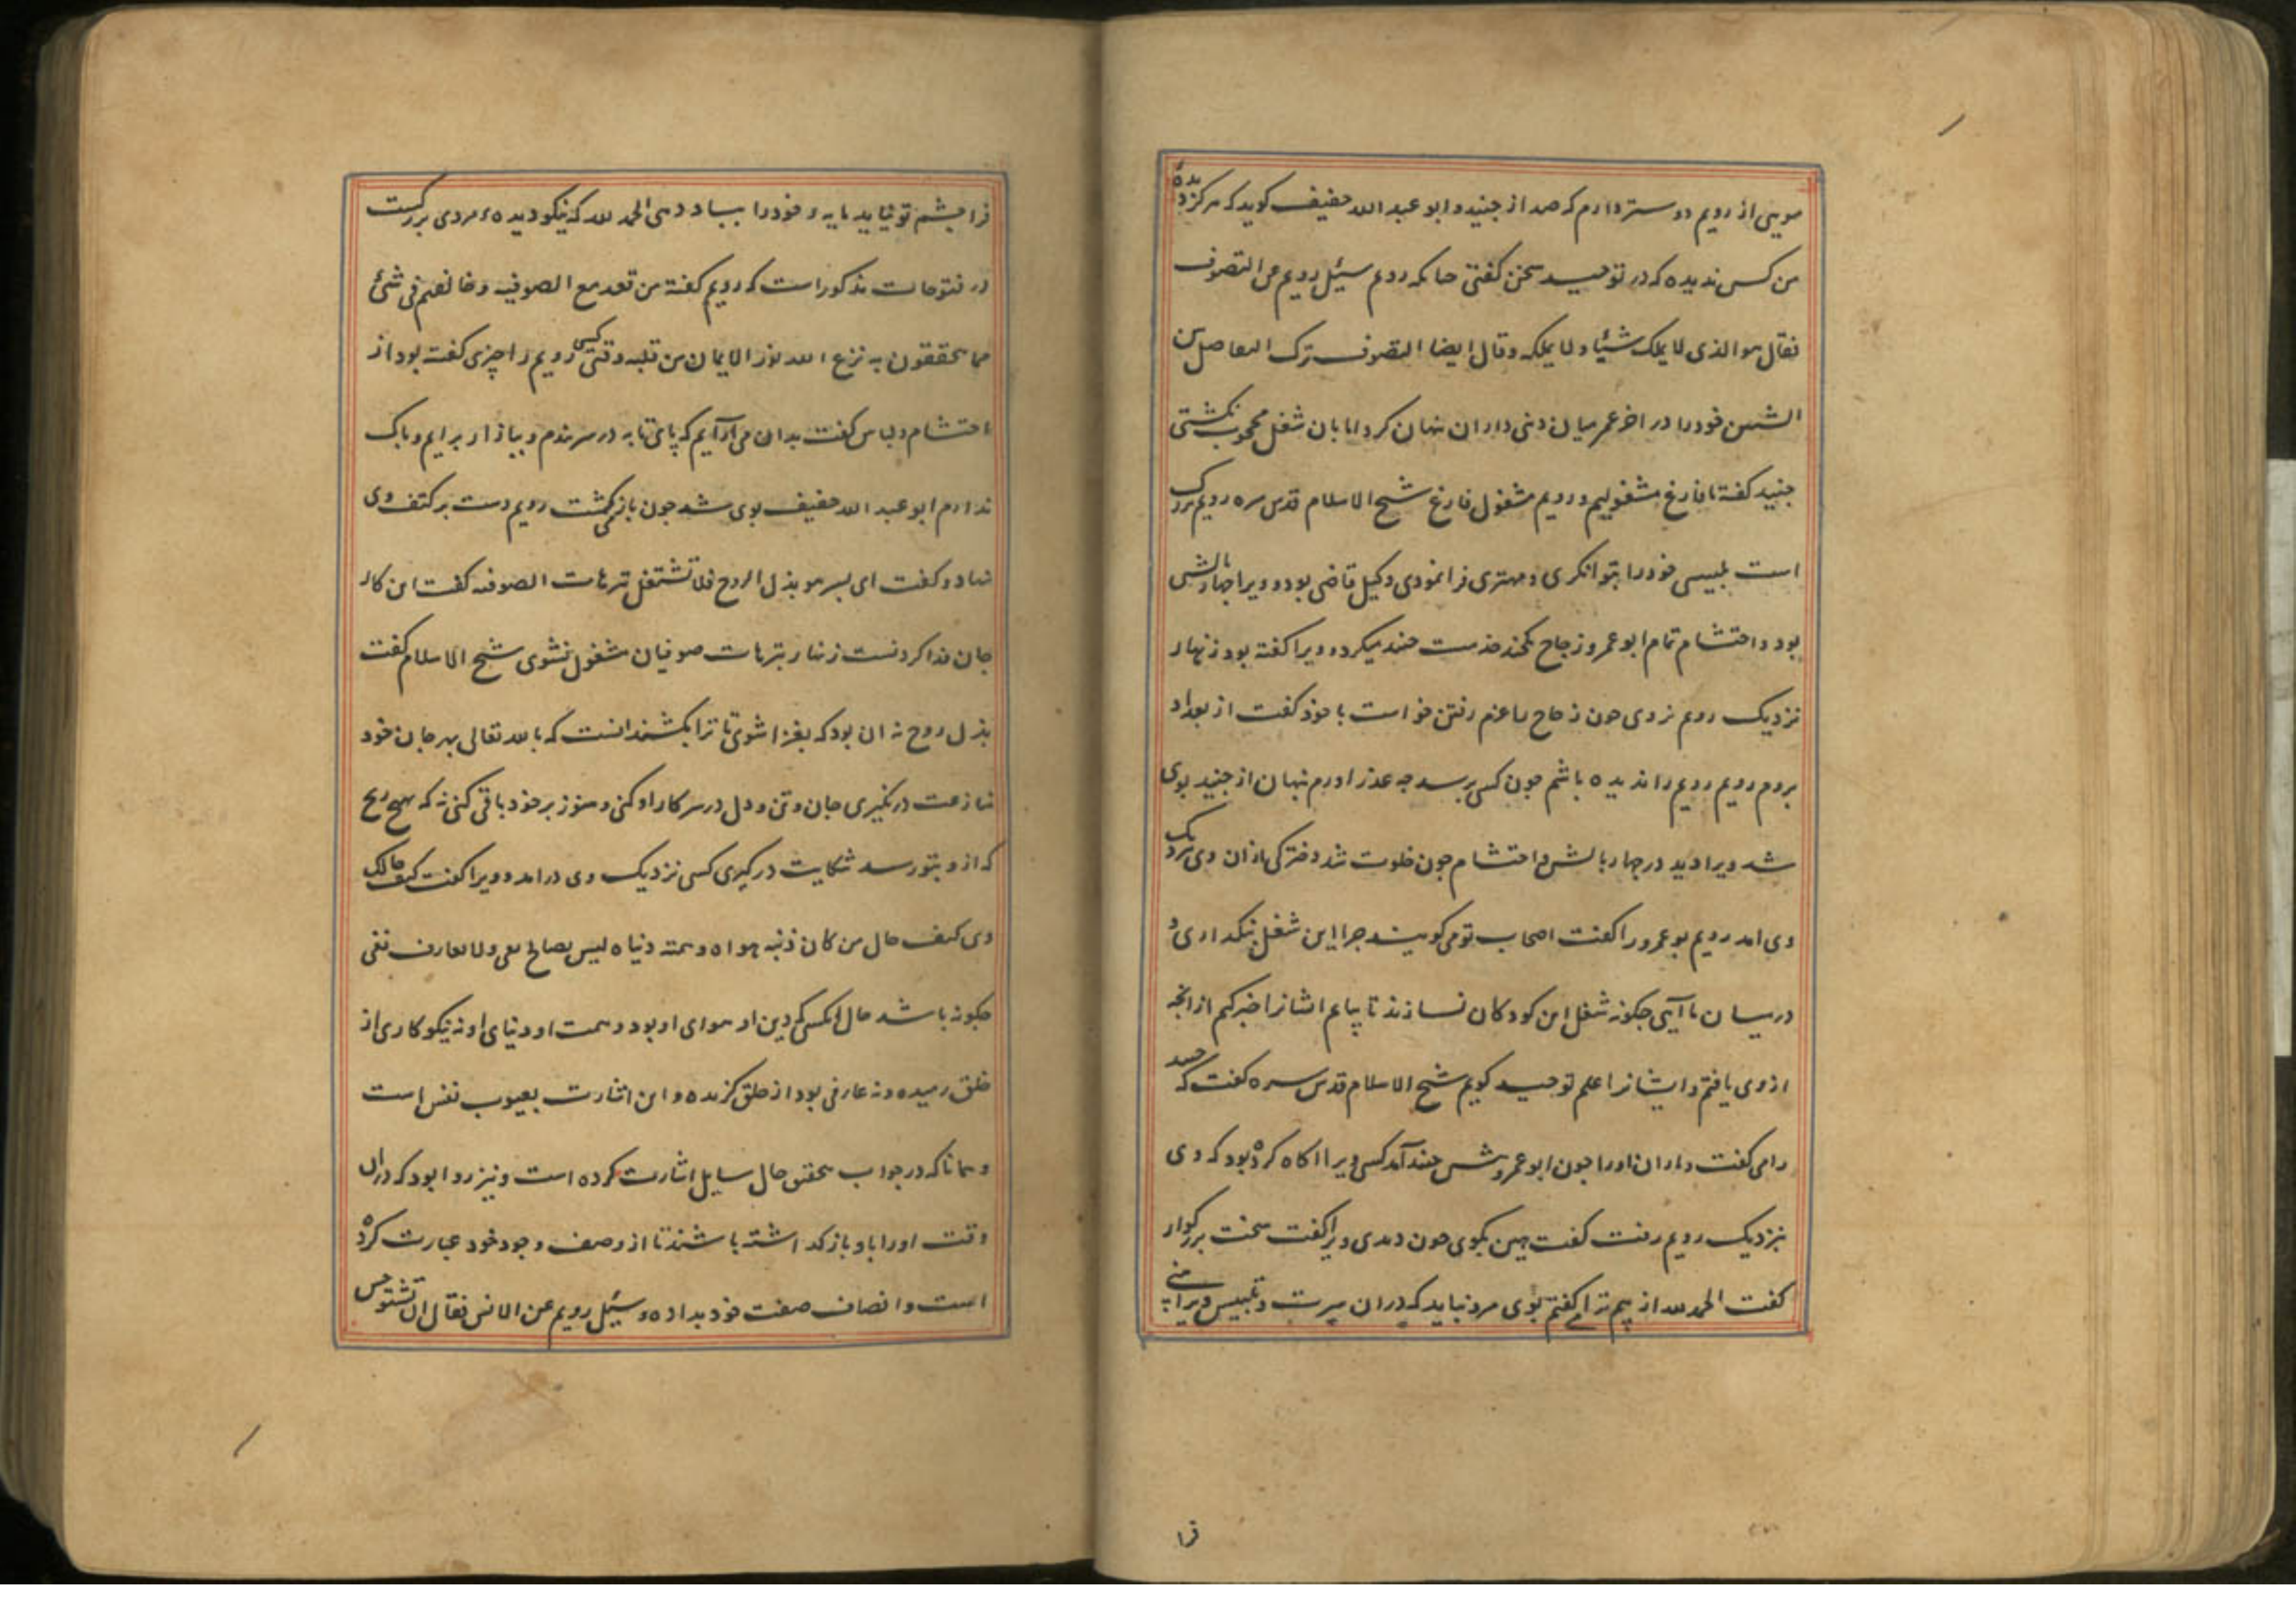 مویی از رویم دوستر دارم که صد از جنید و ابو عبد الله حفیف کوید که هرکز دیده
من کس ندیده که در توحید سخن کفتی حنانکه رویم سئیل رویم عن التصوف
فقال هو الذی لا یملک شیئا و لا یملکه وقال ایضا التصوف ترک التفاضل بین
الشیئین خودرا در اخر عمر میان دنی داران نهان کرد اما بان شغل محجوب نکشتی
جنید کفته ما فارغ مشغولیم و رویم مشغول فارغ شیخ الاسلام قدس سره رویم بزرک
است تلبیسی خودرا بتوانکری و مهتری فرا نمودی وکیل قاضی بود و ویرا چهاربالشی
بود و احتشام تمام ابو عمرو زجاج خدمت جنید میکرد و ویرا کفته بود زنهار
نزدیک رویم نروی چون زجاج را عزم رفتن خواست با خود کفت از بغداد
بروم رویم رویم را ندیده باشم چون کسی پرسد چه عذر اورم پنهان از جنید بوی
شد ویرا دید در چهاربالش و احتشام چون خلوت شد دخترکی ازان وی نزدیک
وی امد رویم بو عمرو را کفت اصحاب تو می کویند چرا این شغل بنکداری و
درمیان ما آیی چکونه شغل این کودکان نسازند تا بیایم انشانرا خبر کنم از انجه
از وی یافتم و ایشانرا علم توحید کویم شیخ الاسلام قدس سره کفت که جنید
را می کفت و یاران اورا چون ابو عمرو پیش جنید آمد کسی ویرا اکاه کرده بود که وی
بنزدیک رویم رفت کفت هین بکوی چون دیدی ویرا کفت سخت بزرکوار
کفت الحمد لله از بیم ترا می کفتم بوی مرو نباید که دران سیرت و تلبیس ویرا بینی
فرا
فرا چشم تو نیاید مایه و خودرا بباد دهی الحمد لله که نیکو دیده مردی بزرکست
در فتوحات مذکور است که رویم کفته من قعد مع الصوفیه و خالفهم فی شئ
مما یحققون به نزع الله نور الایمان من قلبه وقتی کسی رویم را چیزی کفته بود از
احتشام و لباس کفت بدان می آرایم که پای تابه در سر بندم و ببازار برایم و باک
ندارم ابو عبد الله حفیف بوی شد چون باز می کشت رویم دست بر کتف وی
نهاد و کفت ای پسر هو بذل الروح فلا تشتغل بترهات الصوفیه کفت این کار
جان فدا کردنست زنهار بترهات صوفیان مشغول نشوی شیخ الاسلام کفت
بذل روح نه ان بود که بغزا شوی تا ترا بکشند انست که با الله تعالی بهر جان خود
منازعت درنکیری جان و تن و دل در سر کار او کنی و هنوز بر خود باقی کنی نه که بهیچ رنج
که ازو بتو رسد شکایت درکیری کسی نزدیک وی درامد و ویرا کفت کیف حالک
وی کیف حال من کان دنیه هواه و همته دنیاه لیس بصالح تقی ولا بعارف نقی
چکونه باشد حال انکسی که دین او هوای او بود و همت او دنیای او نه نیکو کاری از
خلق رمیده و نه عارفی بود از خلق کزیده و این اشارت بعیوب نفس است
و همانا که در جواب تحقیق حال سایل اشارت کرده است و نیز روا بود که دران
وقت اورا باو باز کداشته باشند تا از وصف وجود خود عبارت کرده
است و انصاف صفت خود بداده و سئیل رویم عن الانس فقال ان تستوحش